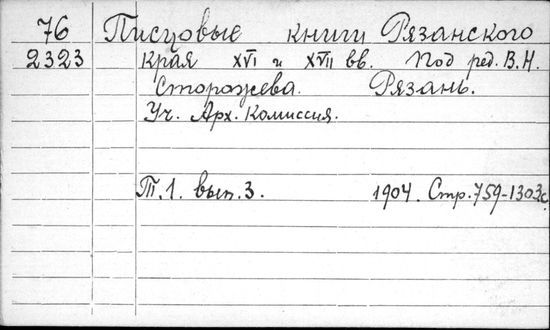 76 Писцовые книги Рязанского
2323 края XVI и XVII вв. Под ред. В.Н.
Сторожева. Рязань.
Уч. Арх. Комиссия.
Т.1. вып. 3. 1904. Стр. 759-1303 с